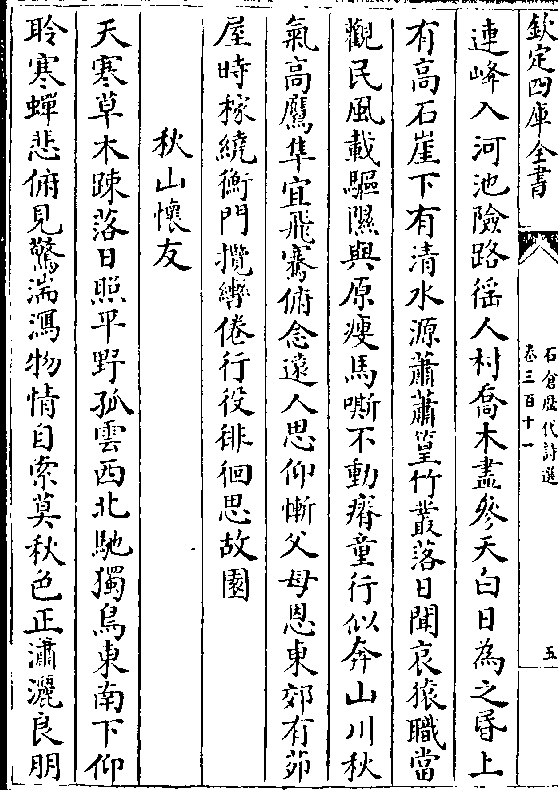 欽定四庫全書
石倉歷代詩選
卷三百十一
五
連峰入河池險路猺人村喬木盡參天白日為之昏上
有高石崖下有清水源蕭蕭篁竹叢落日聞哀猿職當
觀民風載驅隰與原瘦馬嘶不動瘠童行似奔山川秋
氣高鷹隼宜飛騫俯念遠人思仰慚父母恩東郊有茆
屋時稼繞衡門攬轡倦行役徘徊思故園
秋山懷友
天寒草木踈落日照平野孤雲西北馳獨鳥東南下仰
聆寒蟬悲俯見驚湍瀉物情自索莫秋色正瀟灑良朋